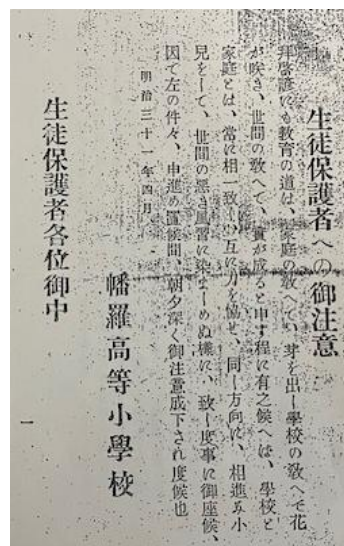 生徒保護者への御注意
拝啓諺にも教育の道は、家庭の教へで、芽を出し學校の教へで花
が咲き、世間の教へで、實が成ると申す程に有之候へは、學校と
家庭とは、常に相一致し、互に力を協せ、同し方向に、相進み小
兒をして、世間の惡き風習に染ましめぬ樣に、致し度事に御座候、
因て左の件々、申進め置候間、朝夕深く御注意成下され度候也
明治三十一年四月
幡羅高等小學校
生徒保護者各位御中
一